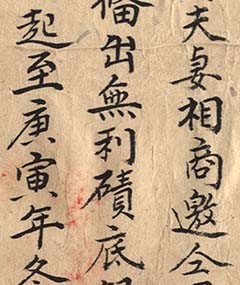 夫妻相商邀仝
備出無利磧底銀
起至庚寅年冬